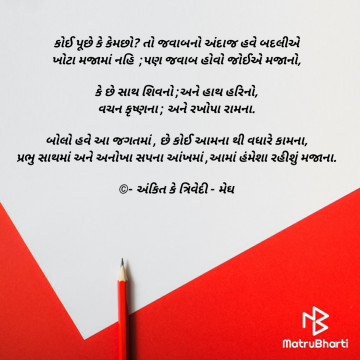 કોઈ પૂછે કે કેમછો? તો જવાબનો અંદાજ હવે બદલીએ
ખોટા મજામાં નહિ ;પણ જવાબ હોવો જોઈએ મજાનો,
કે છે સાથ શિવનો;અને હાથ હરિનો,
વચન કૃષ્ણના; અને રખોપા રામના.
બોલો હવે આ જગતમાં, છે કોઈ આમના થી વધારે કામના,
પ્રભુ સાથમાં અને અનોખા સપના આંખમાં,આમાં હંમેશા રહીશું મજાના.
©- અંકિત કે ત્રિવેદી - મેઘ
MatruBharti